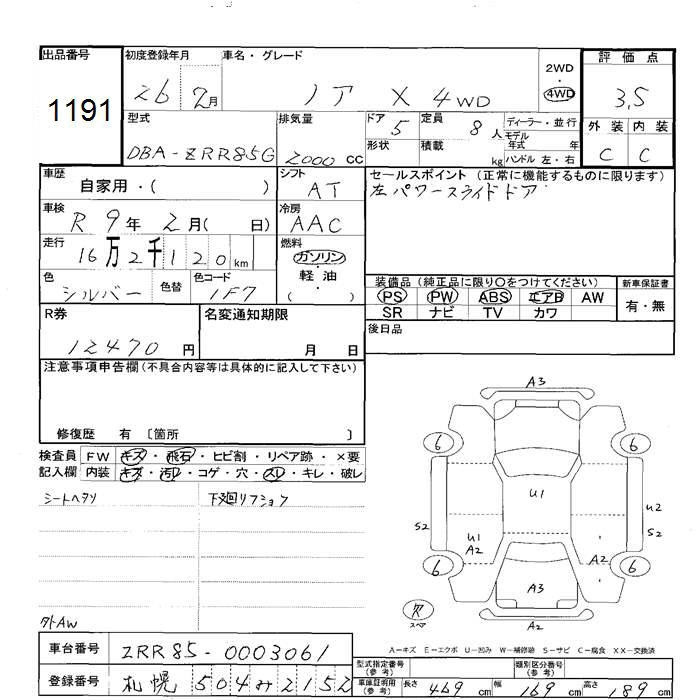 出品番号
1191
初度登録年月
26 2月
車名・グレード
ノア X 4WD
2WD
・
4WD
評価点
3.5
外装 内装
C C
型式
DBA-ZRR85G
排気量
2000 cc
ドア
5
形状
定員
8 人
積載
kg
ディーラー・並行
モデル
年式 年
ハンドル 左・右
車歴
自家用・( )
シフト
AT
セールスポイント (正常に機能するものに限ります)
左パワースライドドア
車検
R 9年 2月( 日)
冷房
AAC
走行
16万2千120km
燃料
ガソリン
軽油
( )
色
シルバー
色替
色コード
1F7
装備品 (純正品に限り○をつけてください)
PS PW ABS エアB AW
SR ナビ TV カワ
新車保証書
有・無
R券
12470円
名変通知期限
月 日
後日品
注意事項申告欄(不具合内容等は具体的に記入して下さい)
修復歴 有 〔箇所 〕
検査員
記入欄
FW キズ・飛石・ヒビ割・リペア跡・×要
内装 キズ・汚レ・コゲ・穴・スレ・キレ・破レ
シートヘタリ
下廻リフション
外AW
A3
6
6
U1
S2
U1
A2
A2
U2
S2
6
6
A3
欠
スペア
A2
A-キズ E-エクボ U-凹み W-補修跡 S-サビ C-腐食 XX-交換済
車台番号
ZRR85-0003061
登録番号
札幌 504み2152
型式指定番号
(参考)
類別区分番号
(参考)
車庫証明用
(参考)
長さ 469 cm
幅 169 cm
高さ 189 cm